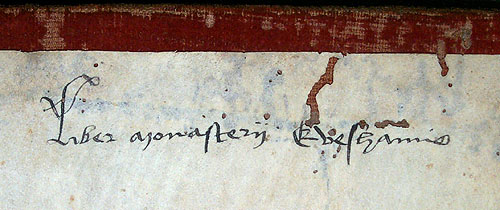 Liber monasterij Eveshamie